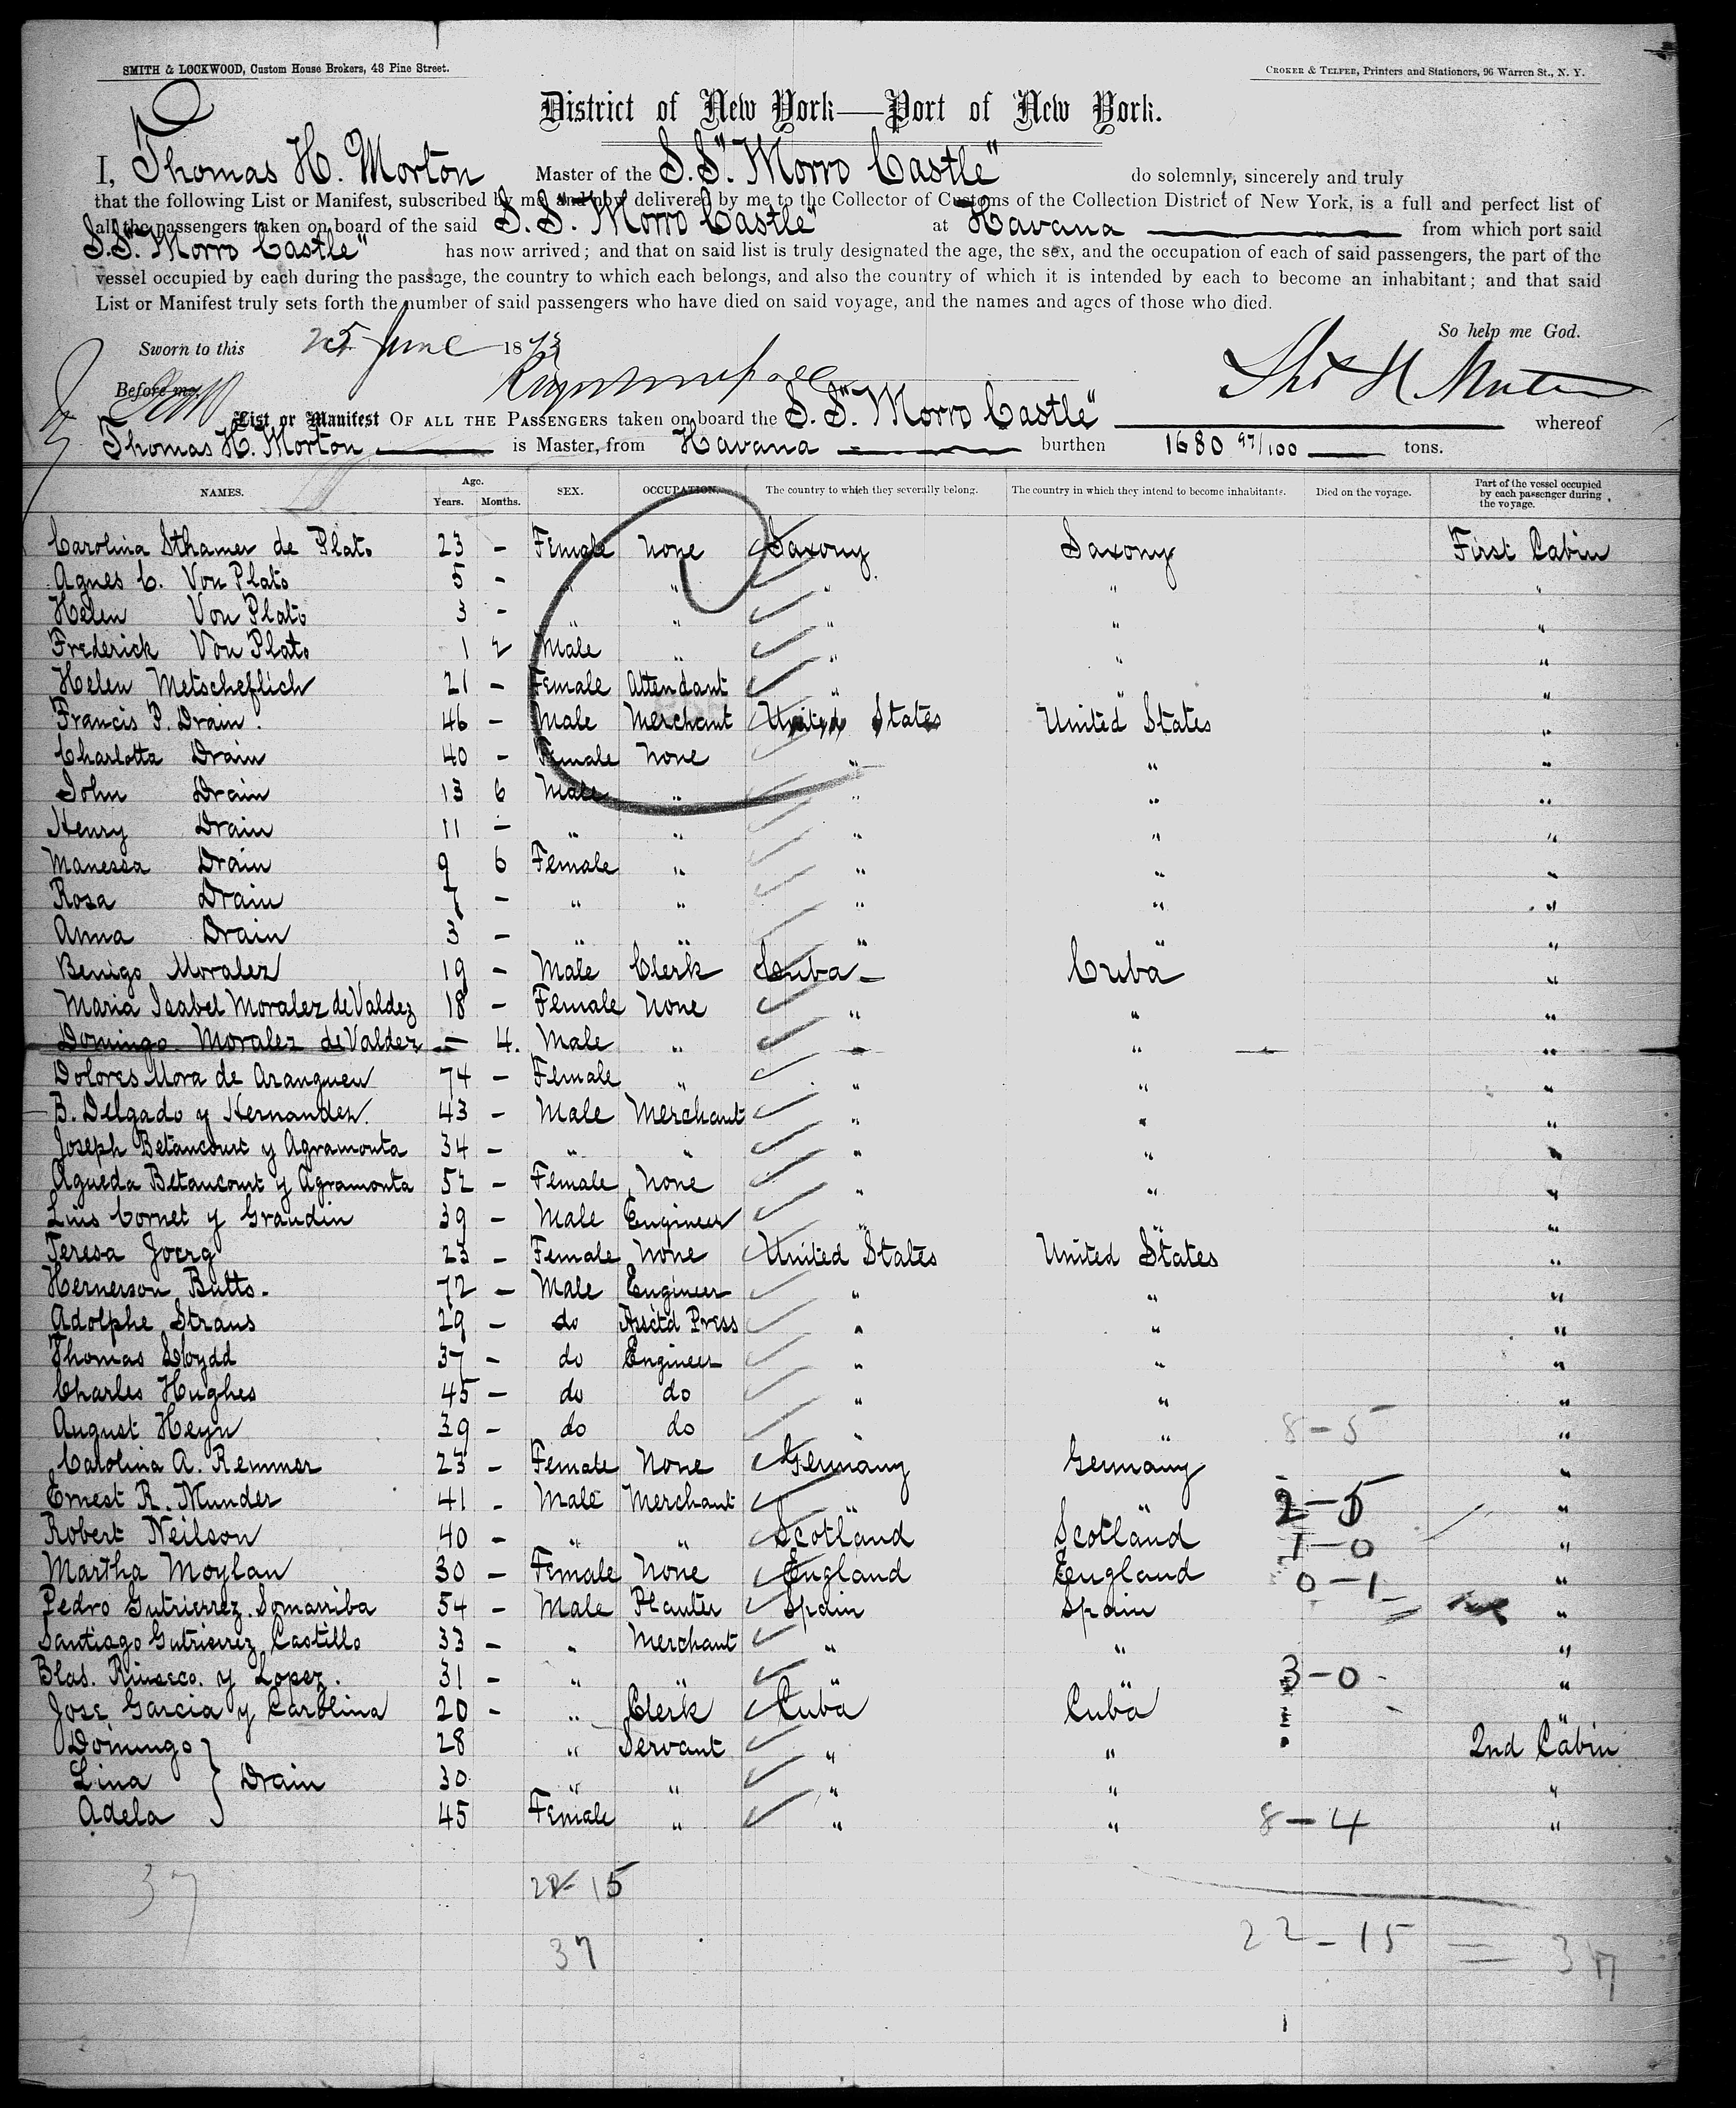 SMITH & LOCKWOOD, Custom House Brokers, 43 Pine Street.
CROKER & TELFER, Printers and Stationers, 96 Warren St., N. Y.
District of New York—Port of New York.
I, Thomas H. Morton Master of the S.S. "Morro Castle" do solemnly, sincerely and truly
that the following List or Manifest, subscribed by me and now delivered by me to the Collector of Customs of the Collection District of New York, is a full and perfect list of
all the passengers taken on board of the said S.S. "Morro Castle" at Havana from which port said
S.S. "Morro Castle" has now arrived; and that on said list is truly designated the age, the sex, and the occupation of each of said passengers, the part of the
vessel occupied by each during the passage, the country to which each belongs, and also the country of which it is intended by each to become an inhabitant; and that said
List or Manifest truly sets forth the number of said passengers who have died on said voyage, and the names and ages of those who died.
So help me God.
Sworn to this 25 June 1873
Before me, Thos H Morton
List or Manifest OF ALL THE PASSENGERS taken on board the S.S. "Morro Castle" whereof
Thomas H. Morton is Master, from Havana burthen 1680 97/100 tons.
NAMES. Age. Years. Months. SEX. OCCUPATION. The country to which they severally belong. The country in which they intend to become inhabitants. Died on the voyage. Part of the vessel occupied by each passenger during the voyage.
Carolina Sthamer de Plato 23 - Female None Saxony Saxony First Cabin
Agnes C. Von Plato 5 - " " " " "
Helen Von Plato 3 - " " " " "
Frederick Von Plato 1 2 Male " " " "
Helen Metscheflich 21 - Female Attendant " " "
Francis P. Drain. 46 - Male Merchant United States United States "
Charlotta Drain 40 - Female None " " "
John Drain 13 6 Male " " " "
Henry Drain 11 - " " " " "
Manessa Drain 9 6 Female " " " "
Rosa Drain 7 - " " " " "
Anna Drain 3 - " " " " "
Benigo Moralez 19 - Male Clerk Cuba Cuba "
Maria Isabel Moralez de Valdez 18 - Female None " " "
Domingo Moralez de Valdez - 4. Male " " " "
Dolores Mora de Aranguen 74 - Female " " " "
B. Delgado y Hernandez. 43 - Male Merchant " " "
Joseph Betancourt y Agramonta 34 - " " " " "
Agueda Betancourt y Agramonta 52 - Female None " " "
Luis Cornet y Graudin 39 - Male Engineer " " "
Teresa Joerg 23 - Female None United States United States "
Hernerson Butts. 72 - Male Engineer " " "
Adolphe Straus 29 - do Asictd Press " " "
Thomas Lloydd 37 - do Engineer " " "
Charles Hughes 45 - do do " " "
August Heyn 39 - do do " " 8-5 "
Carolina A. Remmer 23 - Female None Germany Germany "
Ernest R. Munder 41 - Male Merchant " " 2-5 "
Robert Neilson 40 - " " Scotland Scotland 1-0 "
Martha Moylan 30 - Female None England England 0-1 "
Pedro Gutrierrez Somarriba 54 - Male Planter Spain Spain "
Santiago Gutrierrez Castillo 33 - " Merchant " " "
Blas. Rinseco. y Lopez. 31 - " " " " 3-0 "
Jose Garcia y Carolina 20 - " Clerk Cuba Cuba "
Domingo 28 " Servant " " 2nd Cabin
Lina } Drain 30 " " " " "
Adela 45 Female " " " 8-4 "
37 22-15
37 22-15 = 37